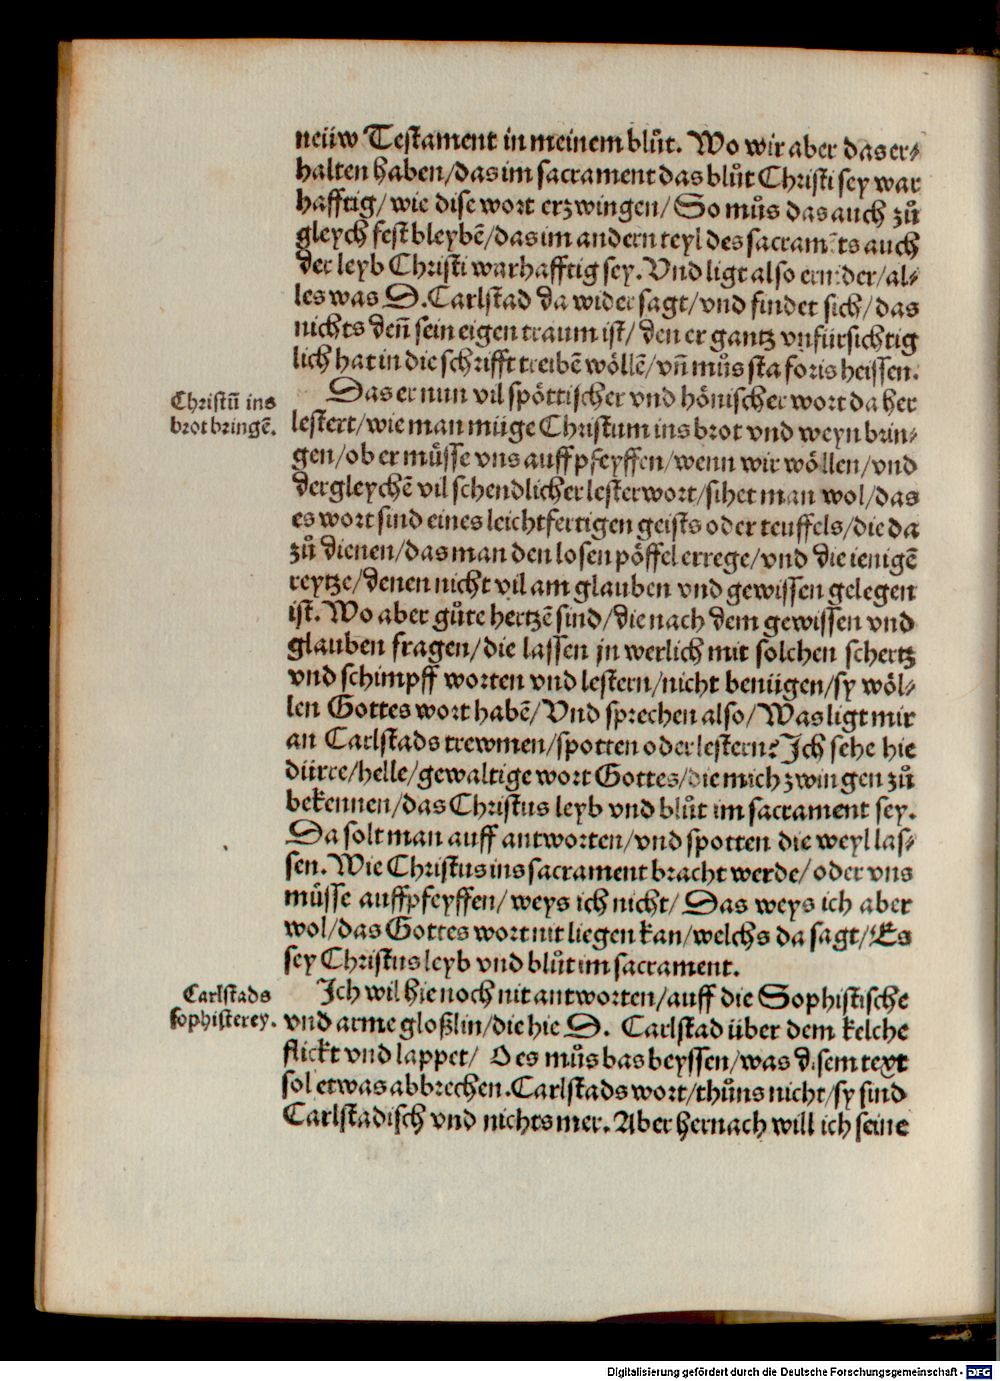 neüw Testament in meinem blůt. Wo wir aber das er⸗
halten haben/das im sacrament das blůt Christi sey war
hafftig/ wie dise wort erzwingen/ So můs das auch zů
gleych fest bleybē/das im andern teyl des sacramēts auch
der leyb Christi warhafftig sey. Vnd ligt also ernider/al⸗
les was D. Carlstad da wider sagt/vnd findet sich/das
nichts deñ sein eigen traum ist/ den er gantz vnfürsichtig
lich hat in die schrifft treibē wöllē/ vñ můs sta foris heissen.
Christū ins
brot bringē.
Das er nun vil spöttischer vnd hönischer wort da her
lestert/wie man müge Christum ins brot vnd weyn brin⸗
gen/ob er müsse vns auffpfeyffen/wenn wir wöllen/vnd
dergleychē vil schendlicher lesterwort/sihet man wol/das
es wort sind eines leichtfertigen geists oder teuffels/die da
zů dienen/das man den losen pöffel errege/vnd die ienigē
reytze/denen nicht vil am glauben vnd gewissen gelegen
ist. Wo aber gůte hertzē sind/die nach dem gewissen vnd
glauben fragen/die lassen jn werlich mit solchen schertz
vnd schimpff worten vnd lestern/nicht benügen/sy wöl⸗
len Gottes wort habē/Vnd sprechen also/Was ligt mir
an Carlstads trewmen/spotten oder lestern? Ich sehe hie
dürre/helle/gewaltige wort Gottes/die mich zwingen zů
bekennen/das Christus leyb vnd blůt im sacrament sey.
Da solt man auff antworten/vnd spotten die weyl las⸗
sen. Wie Christus ins sacrament bracht werde/oder vns
müsse auffpfeyffen/weys ich nicht/ Das weys ich aber
wol/das Gottes wort nit liegen kan/welchs da sagt/Es
sey Christus leyb vnd blůt im sacrament.
Carlstads
sophisterey.
Ich wil hie noch nit antworten/auff die Sophistische
vnd arme gloßlin/die hie D. Carlstad über dem kelche
flickt vnd lappet/ O es můs bas beyssen/was disem text
sol etwas abbrechen. Carlstads wort/thůns nicht/sy sind
Carlstadisch vnd nichts mer. Aber hernach will ich seine
Digitalisierung gefördert durch die Deutsche Forschungsgemeinschaft - DFG